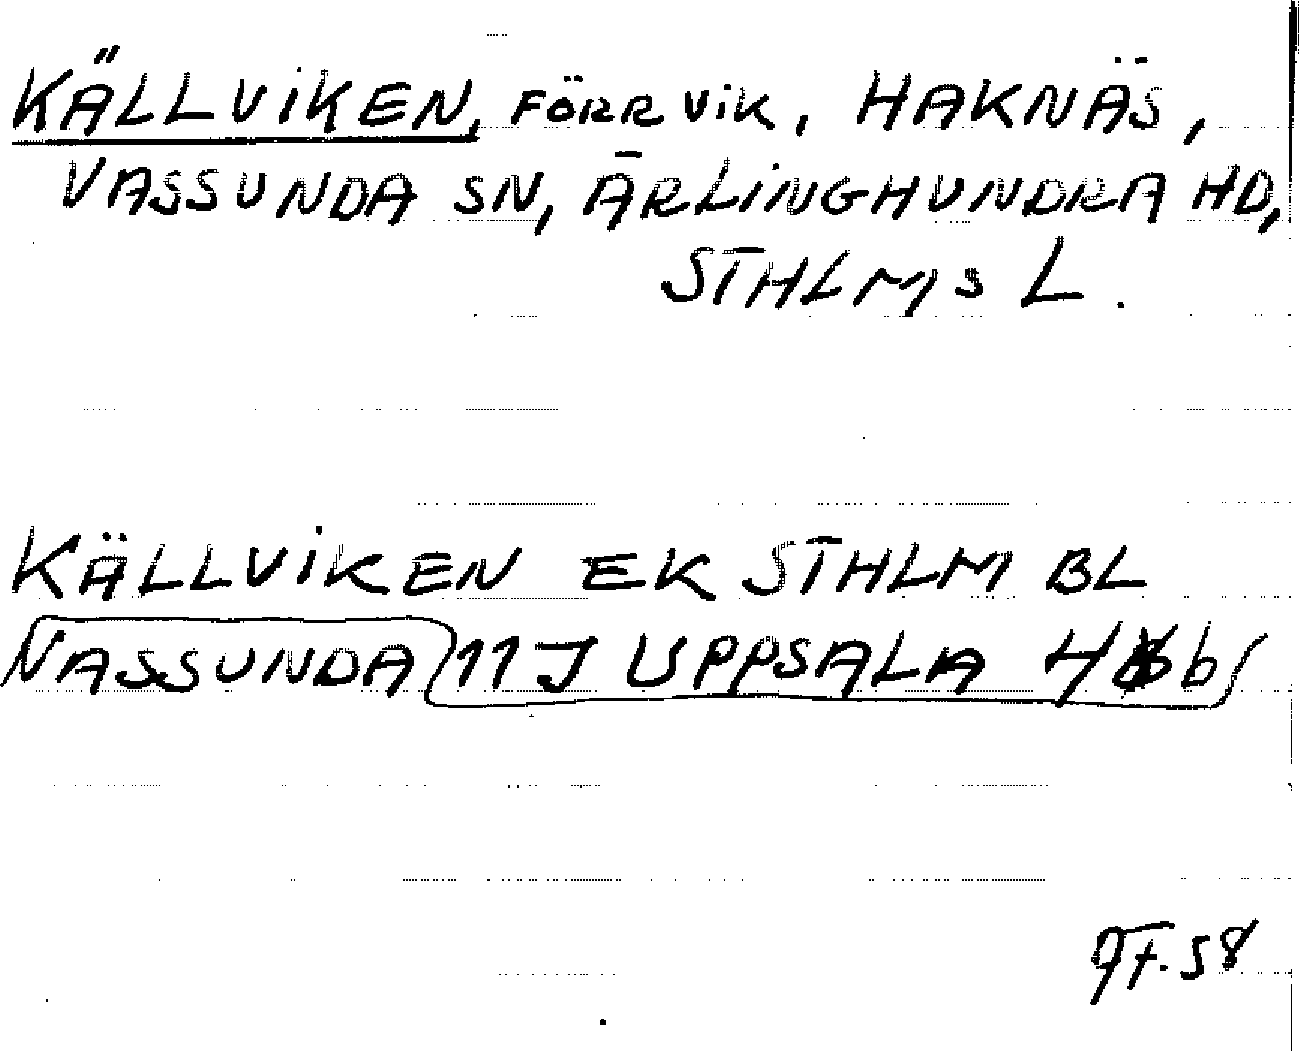 KÄLLVIKEN, FÖRR VIK, HAKNÄS,
VASSUNDA SN, ÄRLINGHUNDRA HD,
STHLMS L.
KÄLLVIKEN EK STHLM BL
VASSUNDA 11J UPPSALA
58